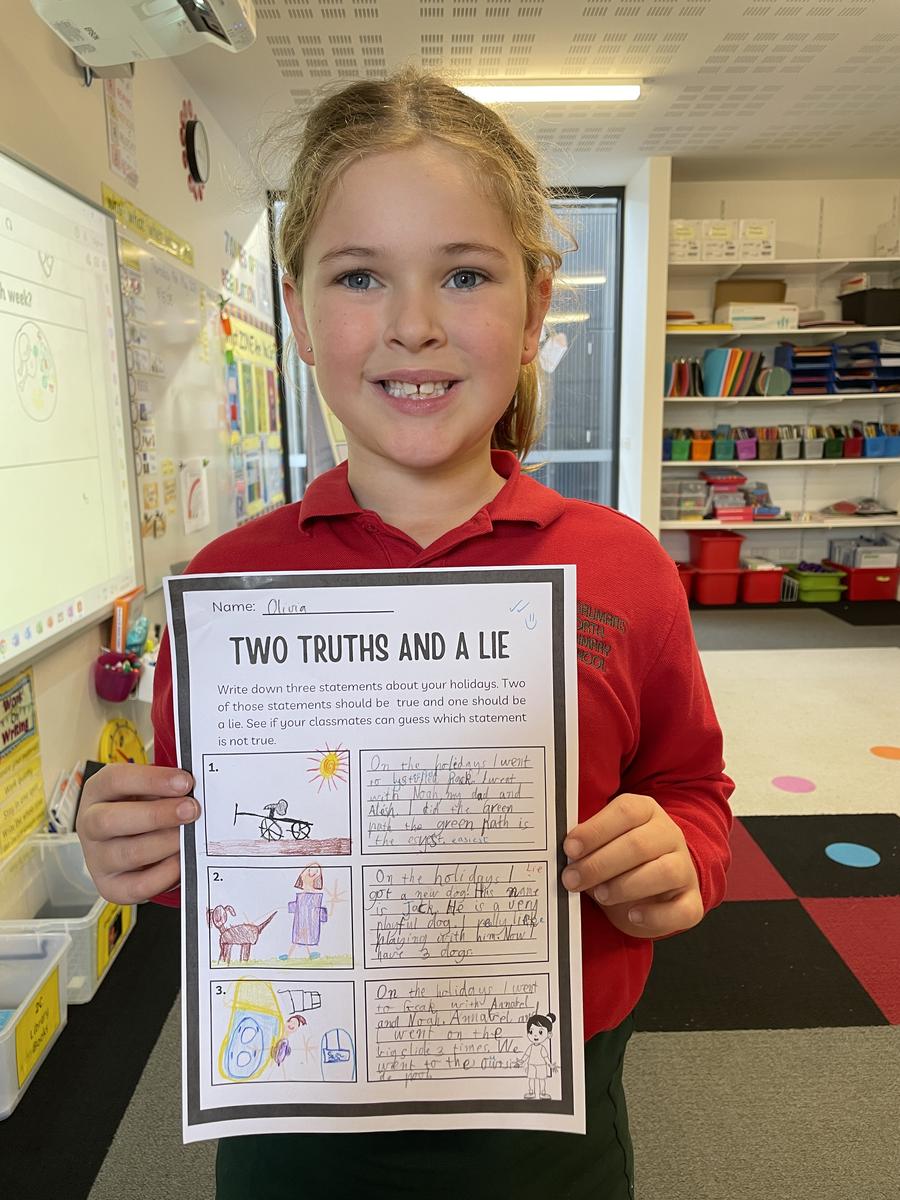 EPSON
h week?
Work on Writing
2C
Library
Books
PRIMARY
Name: Olivia
TWO TRUTHS AND A LIE
Write down three statements about your holidays. Two
of those statements should be true and one should be
a lie. See if your classmates can guess which statement
is not true.
1.
On the holidays I went
to Rock. I went
with Noah my dad and
I did the green
path the green path is
the easiest
2.
Lie
On the holidays I
got a new dog. His name
is Jack. He is a very
playful dog. I really like
playing with him. Now I
have 3 dogs.
3.
On the holidays I went
to with Annabel
and Noah. Annabel and
I went on the
big slide 3 times. We
went to the
de pool.